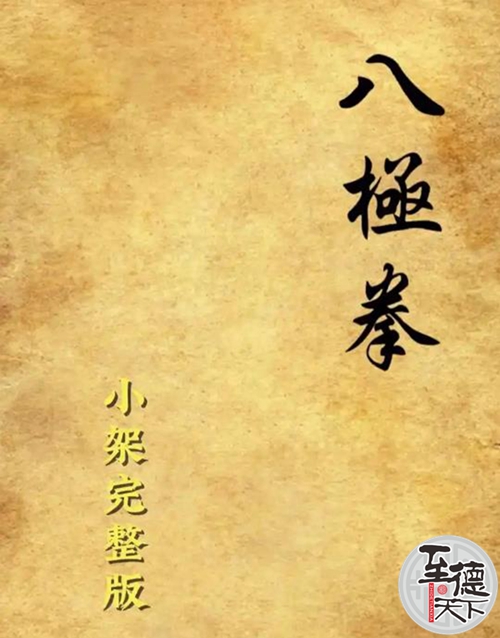 八極拳
小架完整版
至德天下